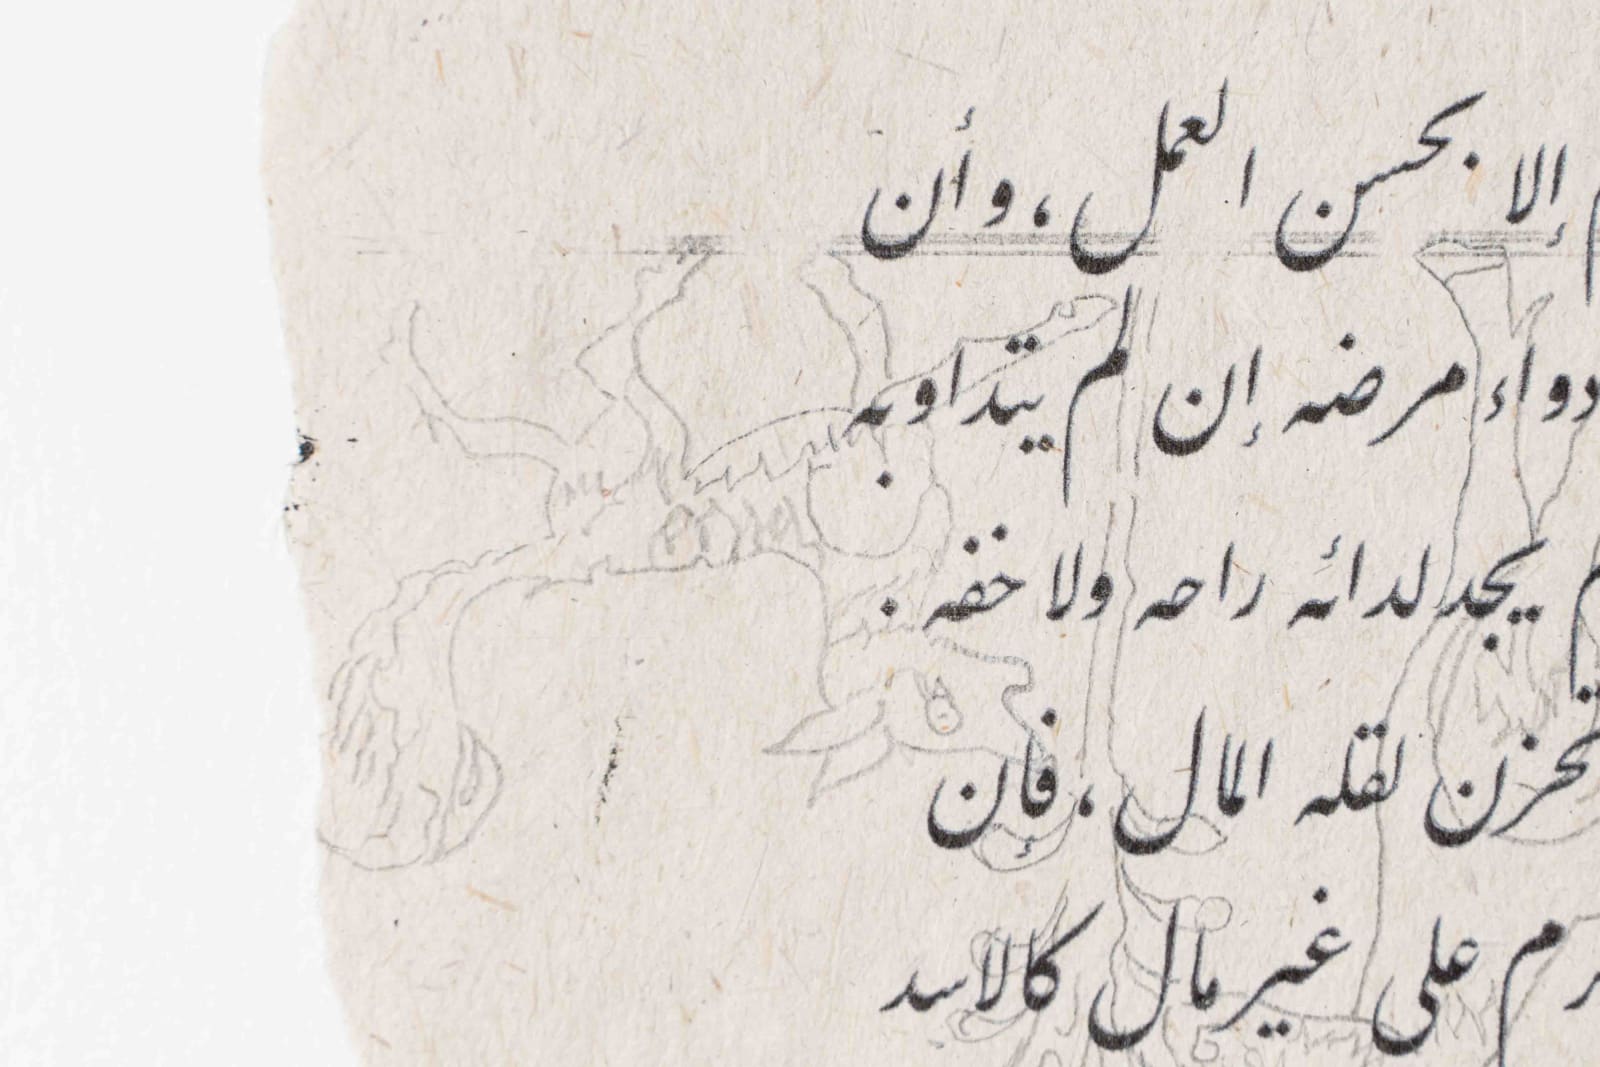 إلا بحسن العمل ، وأن
دواء مرضه إن لم يتداو به
يجد لدائه راحه ولا خفه .
تحزن لقله المال ، فإن
على غير مال كالاسد